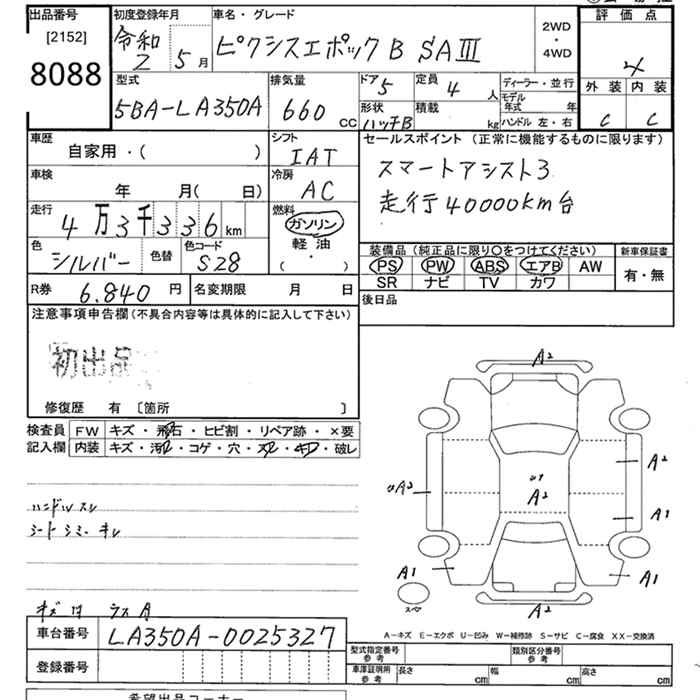 出品番号
[2152]
8088
初度登録年月
令和
2 5月
車名・グレード
ピクシスエポックB SAⅢ
2WD
・
4WD
評価点
4
外装 内装
C C
型式
5BA-LA350A
排気量
660 CC
ドア 5
形状
ハッチB
定員 4 人
積載 kg
ディーラー・並行
モデル年式 年
ハンドル 左・右
車歴
自家用・( )
シフト
IAT
セールスポイント (正常に機能するものに限ります)
スマートアシスト3
走行40000km台
車検
年 月( 日)
冷房
AC
走行
4万3千336km
燃料
ガソリン
軽油
( ・ )
色
シルバー
色替
色コード
S28
装備品 (純正品に限り○をつけてください)
PS PW ABS エアB AW
SR ナビ TV カワ
新車保証書
有・無
R券 6.840 円
名変期限 月 日
後日品
注意事項申告欄 (不具合内容等は具体的に記入して下さい)
初出品
修復歴 有 〔箇所 〕
検査員 FW キズ・飛石・ヒビ割・リペア跡・×要
記入欄 内装 キズ・汚れ・コゲ・穴・スレ・キレ・破レ
ハンドルスレ
シートシミー キレ
キズ
ラスA
A2
A2
A2
A2
A1
A1
A1
A2
スペ
車台番号 LA350A-0025327
登録番号
A-キズ E-エクボ U-凹み W-補修跡 S-サビ C-腐食 XX-交換済
型式指定番号
参考
類別区分番号
参考
車庫証明用
参考
長さ cm 幅 cm 高さ cm
希望出品コーナー